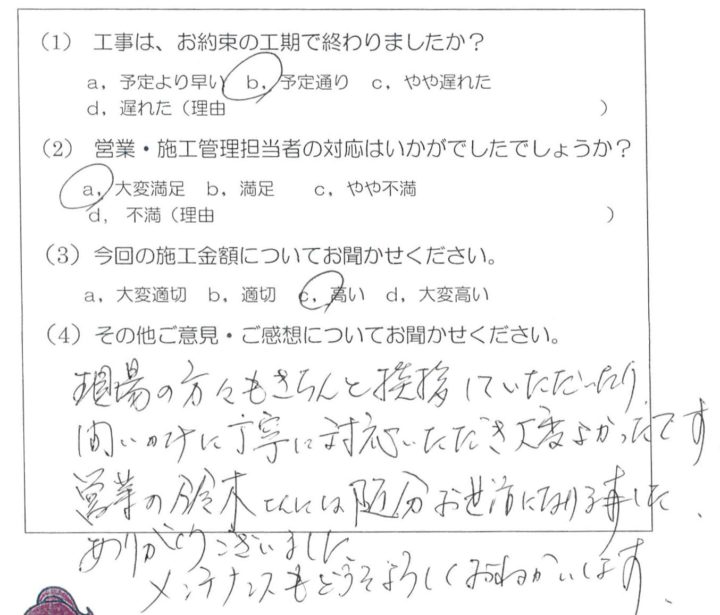 (1) 工事は、お約束の工期で終わりましたか?
a, 予定より早い b, 予定通り c, やや遅れた
d, 遅れた(理由 )
(2) 営業・施工管理担当者の対応はいかがでしたでしょうか?
a, 大変満足 b, 満足 c, やや不満
d, 不満(理由 )
(3) 今回の施工金額についてお聞かせください。
a, 大変適切 b, 適切 c, 高い d, 大変高い
(4) その他ご意見・ご感想についてお聞かせください。
現場の方々もきちんと挨拶していただいたり
問いかけに丁寧に対応いただき大変よかったです
営業の鈴木さんには随分お世話になりました.
ありがとうございました、
メンテナンスもどうぞよろしくおねがいします.